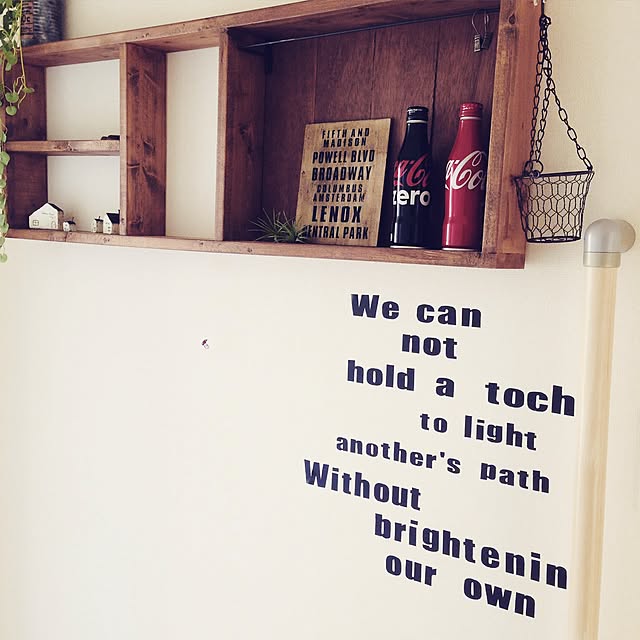 FIFTH AND
MADISON
POWELL BLVD
BROADWAY
COLUMBUS
AMSTERDAM
LENOX
CENTRAL PARK
Coca
zero
Coca
We can
not
hold a toch
to light
another's path
Without
brightenin
our own